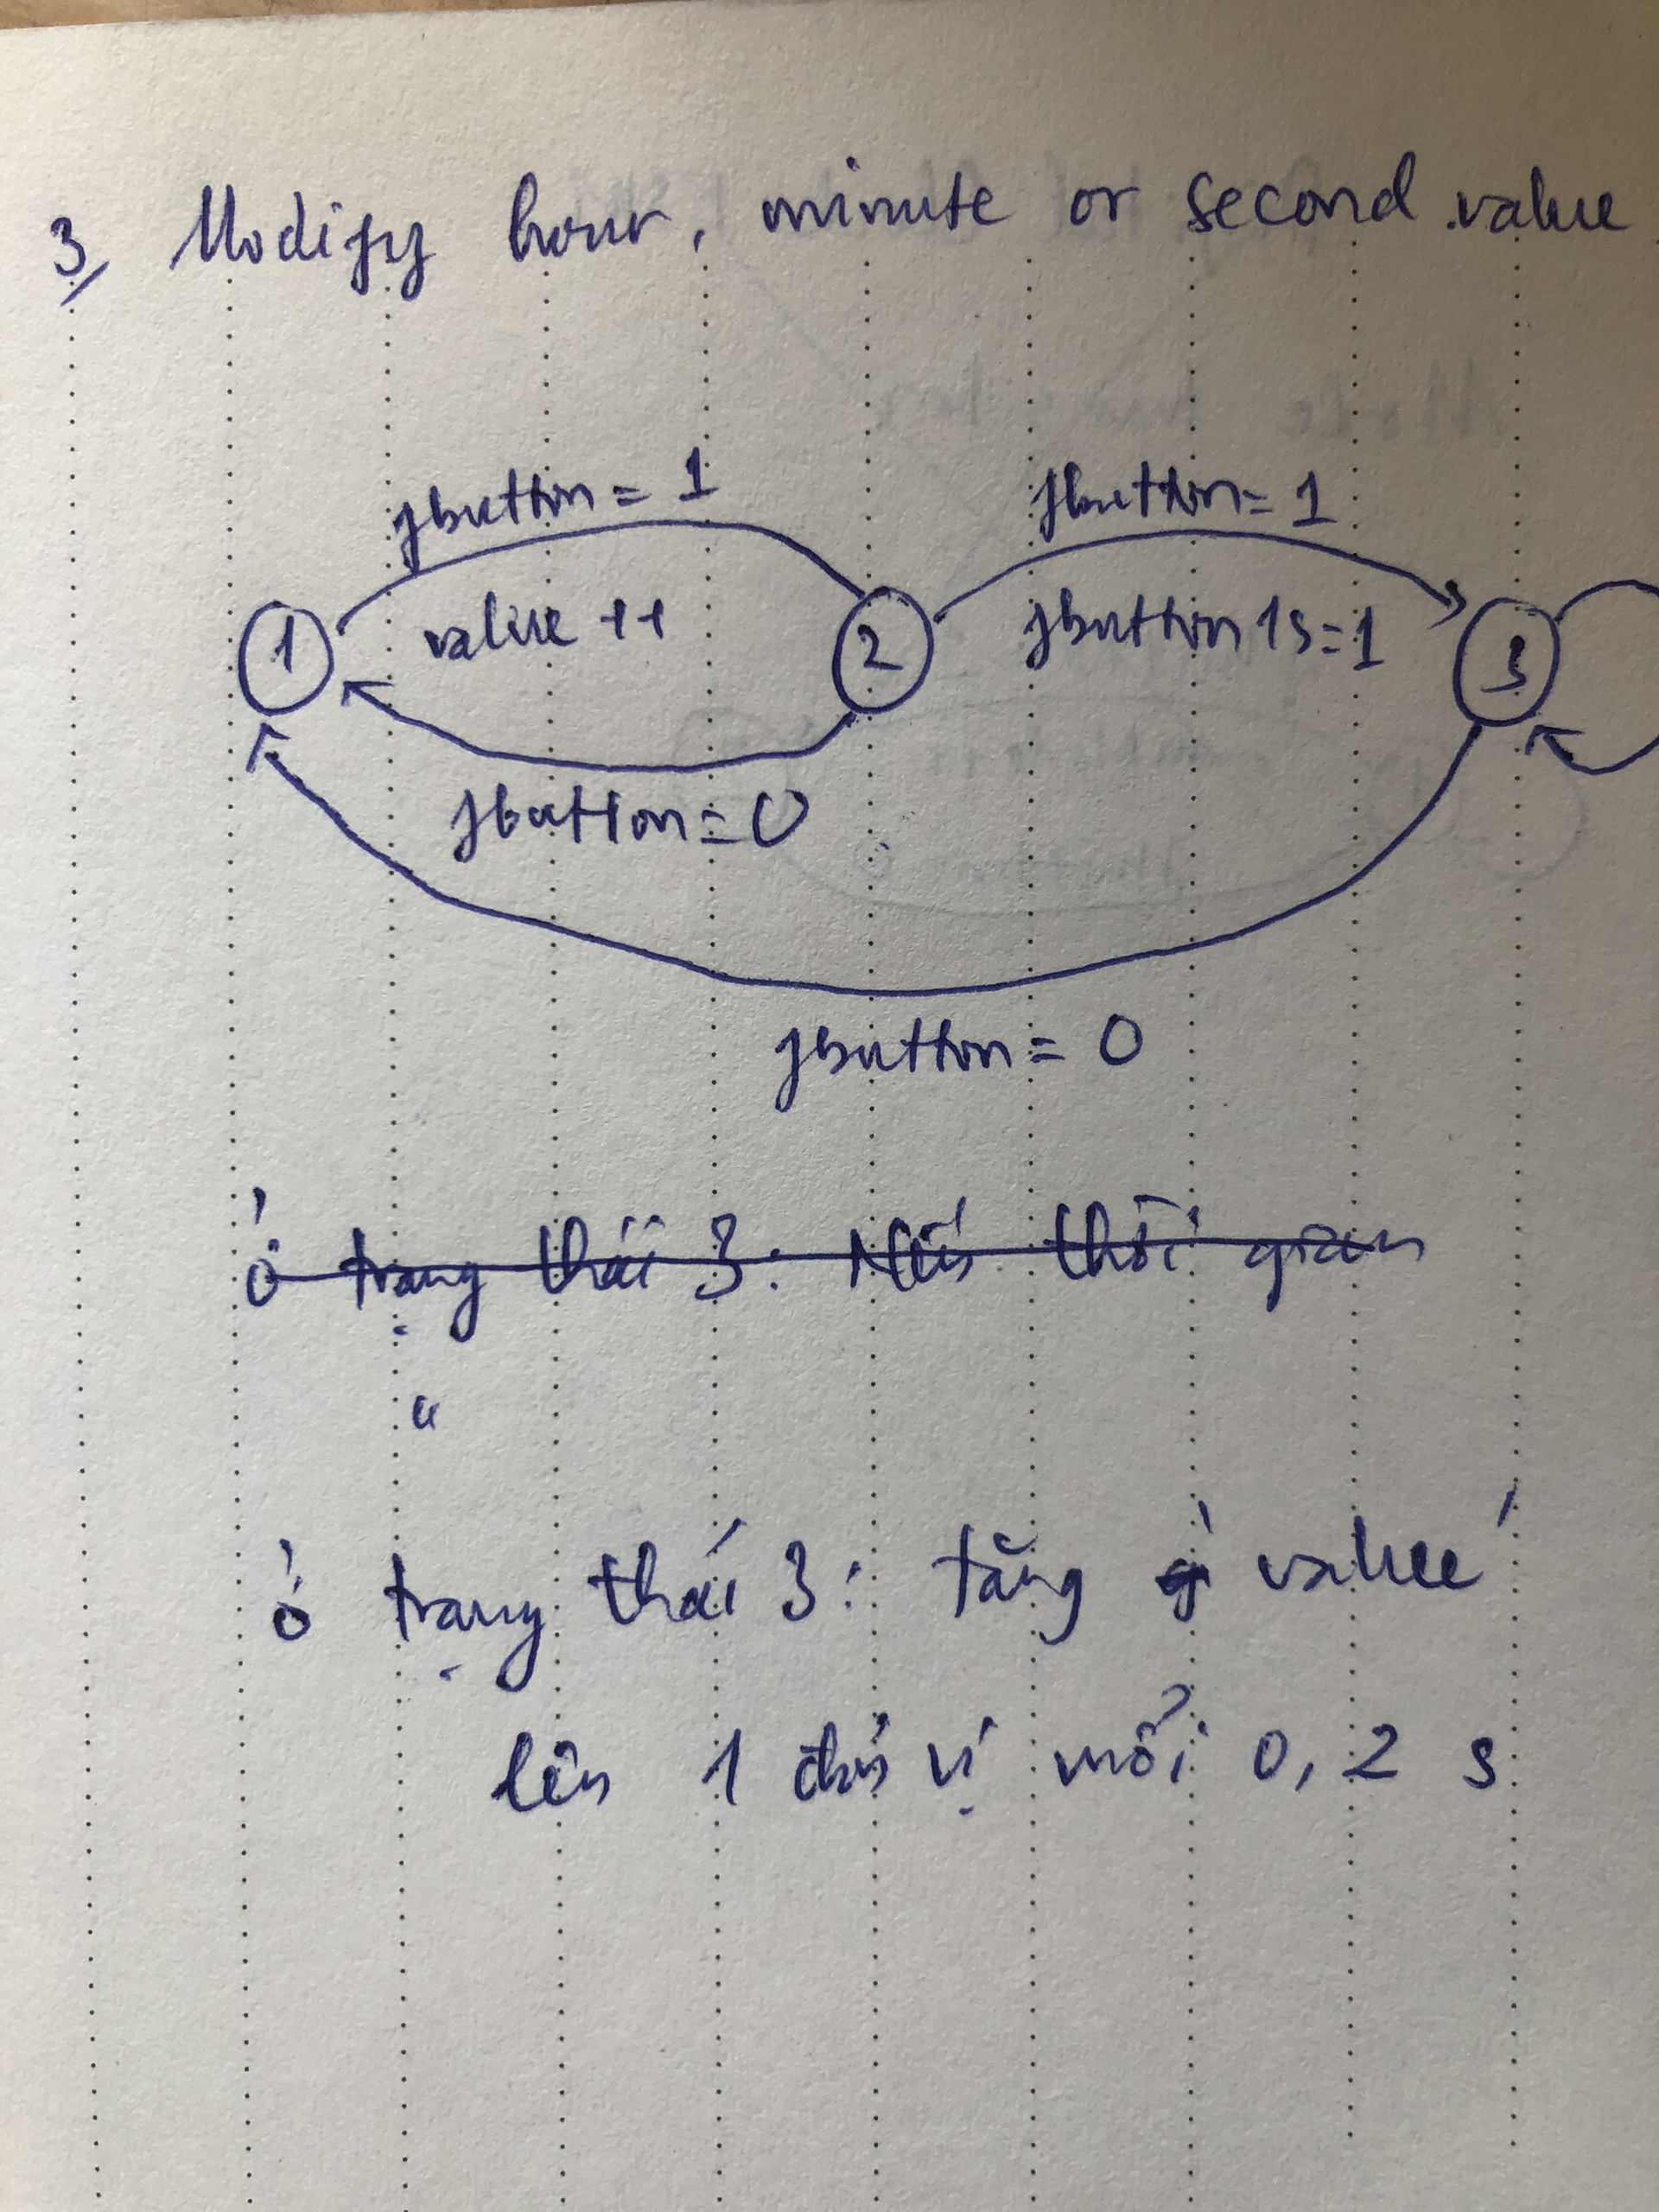 3/ Modify hour, minute or second value
fbutton = 1
fbutton = 1
1
value ++
2
fbutton 1s = 1
3
fbutton = 0
fbutton = 0
ở trạng thái 3: Nếu thời gian
ở trạng thái 3: tăng value
lên 1 đơn vị mỗi 0,2 s